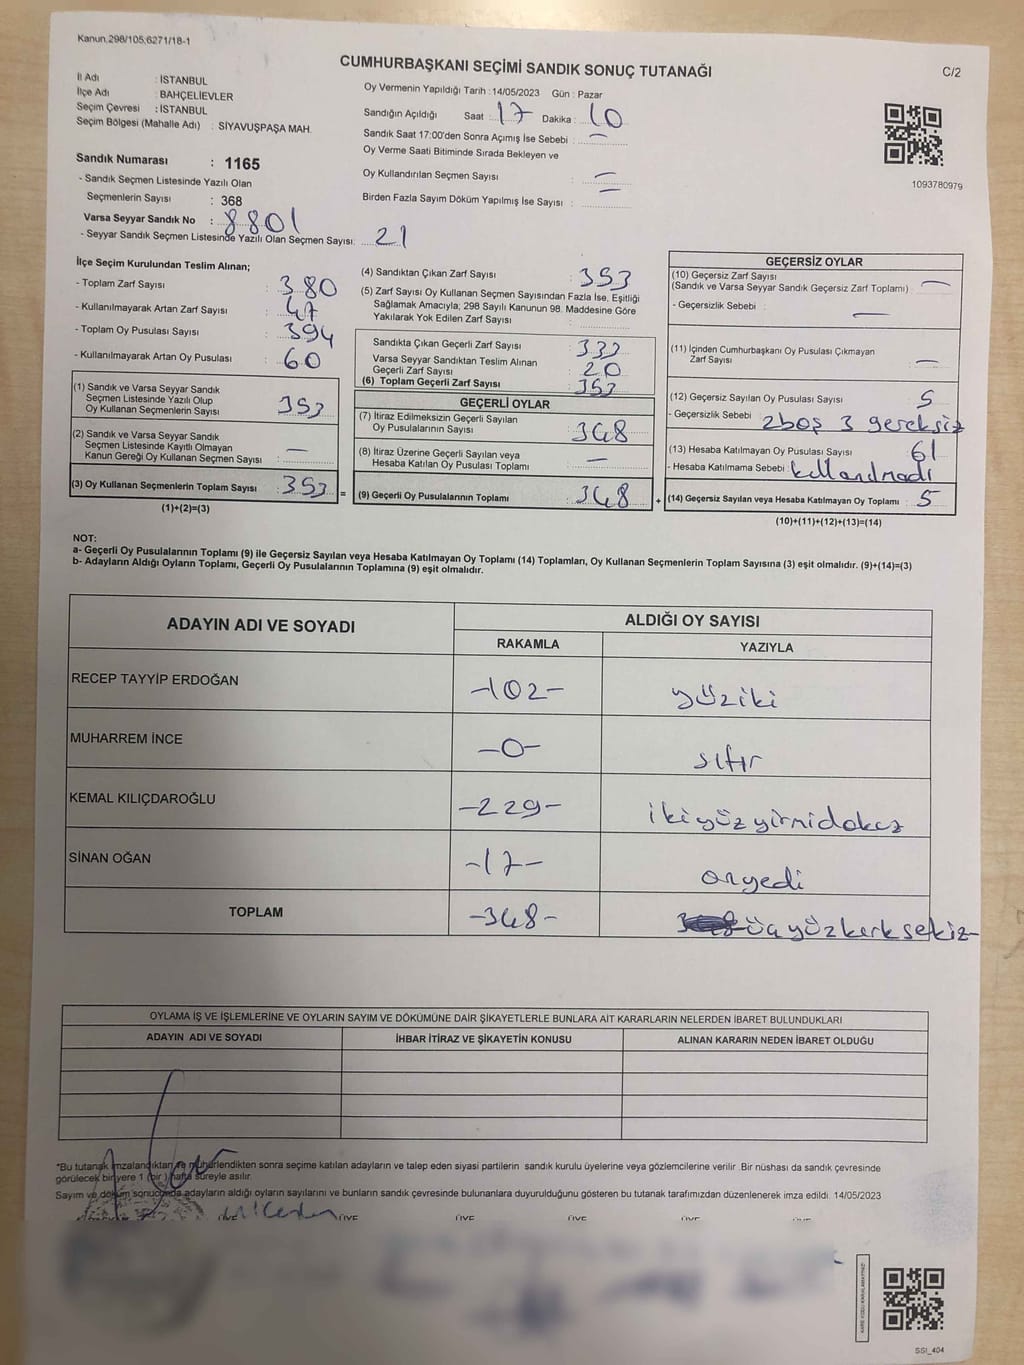 Kanun.298/105;6271/18-1
CUMHURBAŞKANI SEÇİMİ SANDIK SONUÇ TUTANAĞI
C/2
İl Adı : İSTANBUL
İlçe Adı : BAHÇELİEVLER
Seçim Çevresi : İSTANBUL
Seçim Bölgesi (Mahalle Adı) : SİYAVUŞPAŞA MAH.
Sandık Numarası : 1165
- Sandık Seçmen Listesinde Yazılı Olan
Seçmenlerin Sayısı : 368
Varsa Seyyar Sandık No : 8801
- Seyyar Sandık Seçmen Listesinde Yazılı Olan Seçmen Sayısı: 21
Oy Vermenin Yapıldığı Tarih : 14/05/2023 Gün : Pazar
Sandığın Açıldığı Saat : 17 Dakika : 10
Sandık Saat 17:00'den Sonra Açımış İse Sebebi : —
Oy Verme Saati Bitiminde Sırada Bekleyen ve
Oy Kullandırılan Seçmen Sayısı : —
Birden Fazla Sayım Döküm Yapılmış İse Sayısı : —
1093780979
İlçe Seçim Kurulundan Teslim Alınan;
- Toplam Zarf Sayısı : 380
- Kullanılmayarak Artan Zarf Sayısı : 47
- Toplam Oy Pusulası Sayısı : 394
- Kullanılmayarak Artan Oy Pusulası : 60
(1) Sandık ve Varsa Seyyar Sandık
Seçmen Listesinde Yazılı Olup
Oy Kullanan Seçmenlerin Sayısı : 353
(2) Sandık ve Varsa Seyyar Sandık
Seçmen Listesinde Kayıtlı Olmayan
Kanun Gereği Oy Kullanan Seçmen Sayısı : —
(3) Oy Kullanan Seçmenlerin Toplam Sayısı : 353 =
(1)+(2)=(3)
(4) Sandıktan Çıkan Zarf Sayısı : 353
(5) Zarf Sayısı Oy Kullanan Seçmen Sayısından Fazla İse, Eşitliği
Sağlamak Amacıyla; 298 Sayılı Kanunun 98. Maddesine Göre
Yakılarak Yok Edilen Zarf Sayısı :
Sandıkta Çıkan Geçerli Zarf Sayısı : 333
Varsa Seyyar Sandıktan Teslim Alınan
Geçerli Zarf Sayısı : 20
(6) Toplam Geçerli Zarf Sayısı : 353
GEÇERLİ OYLAR
(7) İtiraz Edilmeksizin Geçerli Sayılan
Oy Pusulalarının Sayısı : 348
(8) İtiraz Üzerine Geçerli Sayılan veya
Hesaba Katılan Oy Pusulası Toplamı : —
(9) Geçerli Oy Pusulalarının Toplamı : 348 +
GEÇERSİZ OYLAR
(10) Geçersiz Zarf Sayısı
(Sandık ve Varsa Seyyar Sandık Geçersiz Zarf Toplamı) : —
- Geçersizlik Sebebi : —
(11) İçinden Cumhurbaşkanı Oy Pusulası Çıkmayan
Zarf Sayısı : —
(12) Geçersiz Sayılan Oy Pusulası Sayısı : 5
- Geçersizlik Sebebi : 2boş 3 gereksiz
(13) Hesaba Katılmayan Oy Pusulası Sayısı : 61
- Hesaba Katılmama Sebebi : kullanılmadı
(14) Geçersiz Sayılan veya Hesaba Katılmayan Oy Toplamı : 5
(10)+(11)+(12)+(13)=(14)
NOT:
a- Geçerli Oy Pusulalarının Toplamı (9) ile Geçersiz Sayılan veya Hesaba Katılmayan Oy Toplamı (14) Toplamları, Oy Kullanan Seçmenlerin Toplam Sayısına (3) eşit olmalıdır. (9)+(14)=(3)
b- Adayların Aldığı Oyların Toplamı, Geçerli Oy Pusulalarının Toplamına (9) eşit olmalıdır.
ADAYIN ADI VE SOYADI ALDIĞI OY SAYISI
RAKAMLA YAZIYLA
RECEP TAYYİP ERDOĞAN -102- yüziki
MUHARREM İNCE -0- sıfır
KEMAL KILIÇDAROĞLU -229- ikiyüzyirmidokuz
SİNAN OĞAN -17- onyedi
TOPLAM -348- üçyüzkırksekiz-
OYLAMA İŞ VE İŞLEMLERİNE VE OYLARIN SAYIM VE DÖKÜMÜNE DAİR ŞİKAYETLERLE BUNLARA AİT KARARLARIN NELERDEN İBARET BULUNDUKLARI
ADAYIN ADI VE SOYADI İHBAR İTİRAZ VE ŞİKAYETİN KONUSU ALINAN KARARIN NEDEN İBARET OLDUĞU
*Bu tutanak imzalandıktan ve mühürlendikten sonra seçime katılan adayların ve talep eden siyasi partilerin sandık kurulu üyelerine veya gözlemcilerine verilir .Bir nüshası da sandık çevresinde
görülecek bir yere 1 (bir ) hafta süreyle asılır.
Sayım ve döküm sonucunda adayların aldığı oyların sayılarını ve bunların sandık çevresinde bulunanlara duyurulduğunu gösteren bu tutanak tarafımızdan düzenlenerek imza edildi. 14/05/2023
ÜYE ÜYE ÜYE ÜYE ÜYE
KARE KODU KARALAMAYINIZ!
SSI_404